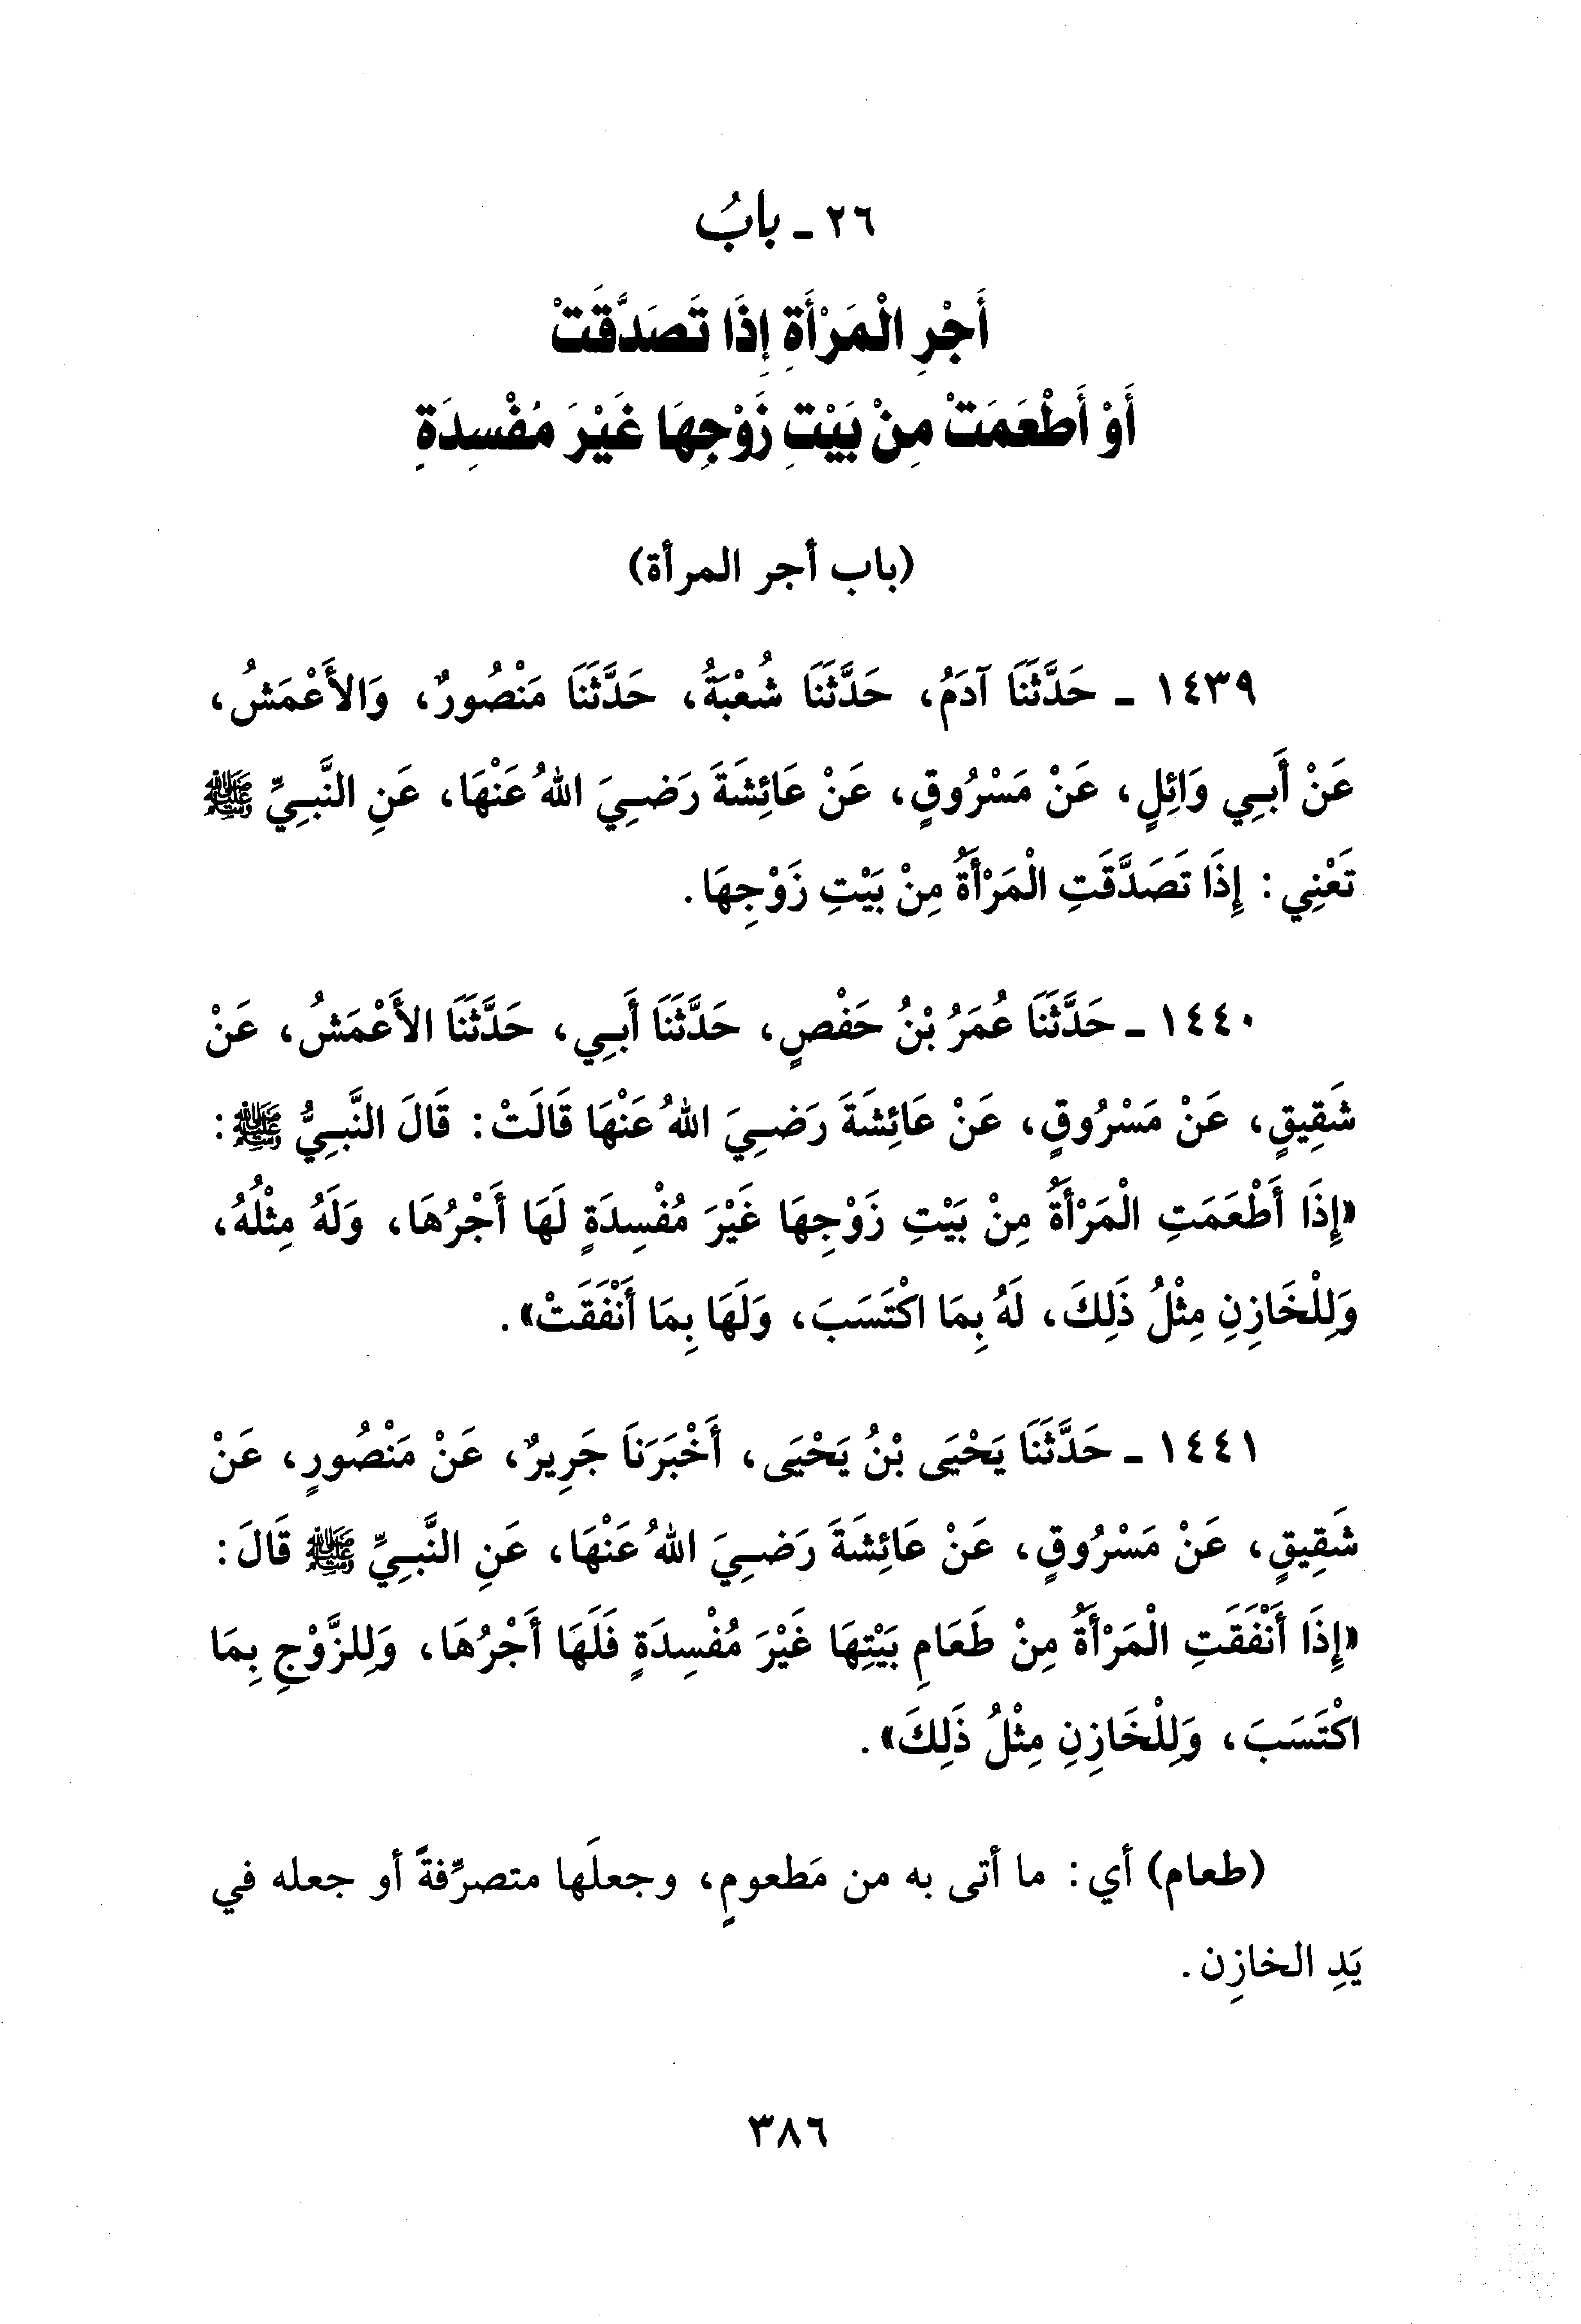 ٢٦ ـ بابُ
أَجْرِ الْمَرْأَةِ إِذَا تَصَدَّقَتْ
أَوْ أَطْعَمَتْ مِنْ بَيْتِ زَوْجِهَا غَيْرَ مُفْسِدَةٍ
(باب أجر المرأة)
١٤٣٩ ـ حَدَّثَنَا آدَمُ، حَدَّثَنَا شُعْبَةُ، حَدَّثَنَا مَنْصُورٌ، وَالأَعْمَشُ،
عَنْ أَبِي وَائِلٍ، عَنْ مَسْرُوقٍ، عَنْ عَائِشَةَ رَضِيَ اللهُ عَنْهَا، عَنِ النَّبِيِّ ﷺ
تَعْنِي: إِذَا تَصَدَّقَتِ الْمَرْأَةُ مِنْ بَيْتِ زَوْجِهَا.
١٤٤٠ ـ حَدَّثَنَا عُمَرُ بْنُ حَفْصٍ، حَدَّثَنَا أَبِي، حَدَّثَنَا الأَعْمَشُ، عَنْ
شَقِيقٍ، عَنْ مَسْرُوقٍ، عَنْ عَائِشَةَ رَضِيَ اللهُ عَنْهَا قَالَتْ: قَالَ النَّبِيُّ ﷺ:
«إِذَا أَطْعَمَتِ الْمَرْأَةُ مِنْ بَيْتِ زَوْجِهَا غَيْرَ مُفْسِدَةٍ لَهَا أَجْرُهَا، وَلَهُ مِثْلُهُ،
وَلِلْخَازِنِ مِثْلُ ذَلِكَ، لَهُ بِمَا اكْتَسَبَ، وَلَهَا بِمَا أَنْفَقَتْ».
١٤٤١ ـ حَدَّثَنَا يَحْيَى بْنُ يَحْيَى، أَخْبَرَنَا جَرِيرٌ، عَنْ مَنْصُورٍ، عَنْ
شَقِيقٍ، عَنْ مَسْرُوقٍ، عَنْ عَائِشَةَ رَضِيَ اللهُ عَنْهَا، عَنِ النَّبِيِّ ﷺ قَالَ:
«إِذَا أَنْفَقَتِ الْمَرْأَةُ مِنْ طَعَامِ بَيْتِهَا غَيْرَ مُفْسِدَةٍ فَلَهَا أَجْرُهَا، وَلِلزَّوْجِ بِمَا
اكْتَسَبَ، وَلِلْخَازِنِ مِثْلُ ذَلِكَ».
(طعام) أي: ما أتى به من مَطعومٍ، وجعلَها متصرِّفةً أو جعله في
يَدِ الخازِن.
٣٨٦